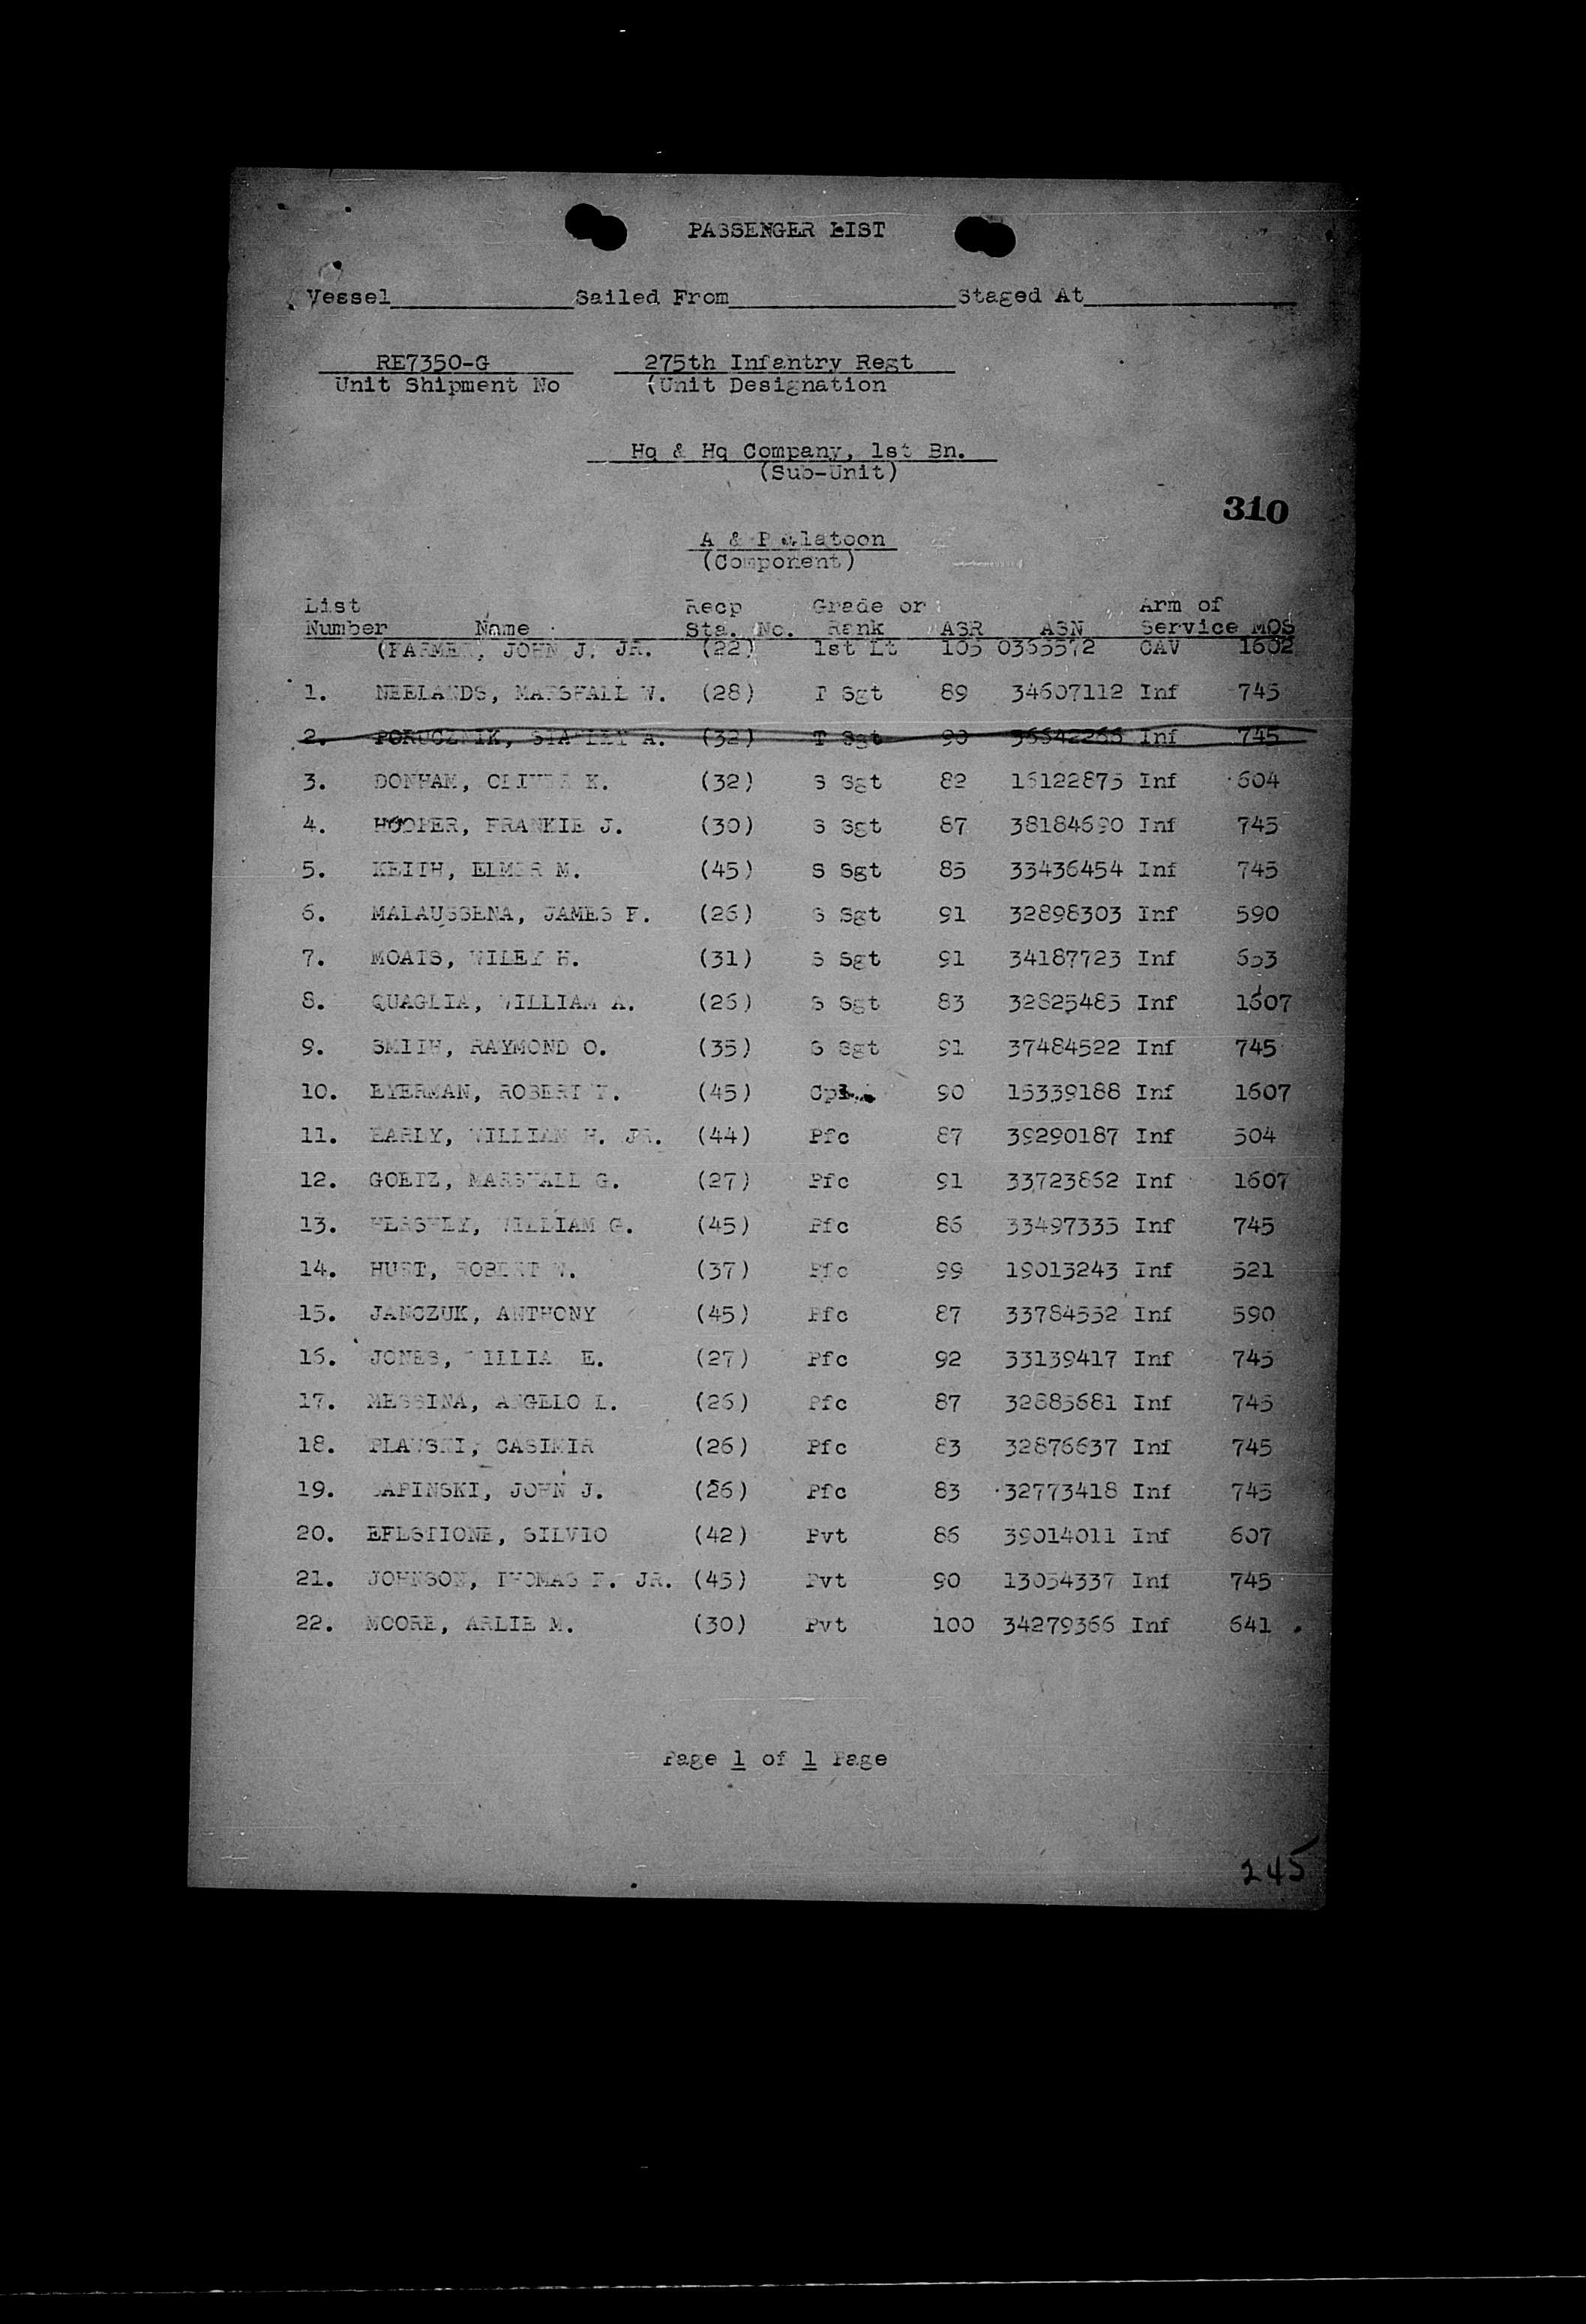 PASSENGER LIST
Vessel Sailed From Staged At
RE7350-G 275th Infantry Regt
Unit Shipment No (Unit Designation
Hq & Hq Company, 1st Bn.
(Sub-Unit)
310
A & P Platoon
(Component)
List Recp Grade or Arm of
Number Name Sta. No. Rank ASR ASN Service MOS
(FARMER, JOHN J. JR. (22) 1st Lt 105 0365572 CAV 1602
1. NEELANDS, MARSHALL W. (28) T Sgt 89 34607112 Inf 745
2. PORUCZNIK, STANLEY A. (32) T Sgt 90 36642266 Inf 745
3. DONHAM, CLIVER K. (32) S Sgt 82 16122875 Inf 604
4. HOOPER, FRANKIE J. (30) S Sgt 87 38184690 Inf 745
5. KEITH, ELMER M. (45) S Sgt 85 33436454 Inf 745
6. MALAUSSENA, JAMES F. (26) S Sgt 91 32898303 Inf 590
7. MOATS, WILEY H. (31) S Sgt 91 34187723 Inf 653
8. QUAGLIA, WILLIAM A. (26) S Sgt 83 32825485 Inf 1607
9. SMITH, RAYMOND O. (35) S Sgt 91 37484522 Inf 745
10. EYERMAN, ROBERT T. (45) Cpl. 90 15339188 Inf 1607
11. EARLY, WILLIAM H. JR. (44) Pfc 87 39290187 Inf 504
12. GOETZ, MARSHALL G. (27) Pfc 91 33723862 Inf 1607
13. HERSHEY, WILLIAM G. (45) Pfc 86 33497335 Inf 745
14. HURT, ROBERT W. (37) Pfc 99 19013243 Inf 521
15. JANCZUK, ANTHONY (45) Pfc 87 33784552 Inf 590
16. JONES, WILLIAM E. (27) Pfc 92 33139417 Inf 745
17. MESSINA, ANGELO L. (26) Pfc 87 32885681 Inf 745
18. PLAWSKI, CASIMIR (26) Pfc 83 32876637 Inf 745
19. SAPINSKI, JOHN J. (26) Pfc 83 32773418 Inf 745
20. SILVIO (42) Pvt 86 39014011 Inf 607
21. JOHNSON, THOMAS F. JR. (45) Pvt 90 13054337 Inf 745
22. MOORE, ARLIE M. (30) Pvt 100 34279366 Inf 641
Page 1 of 1 Page
245